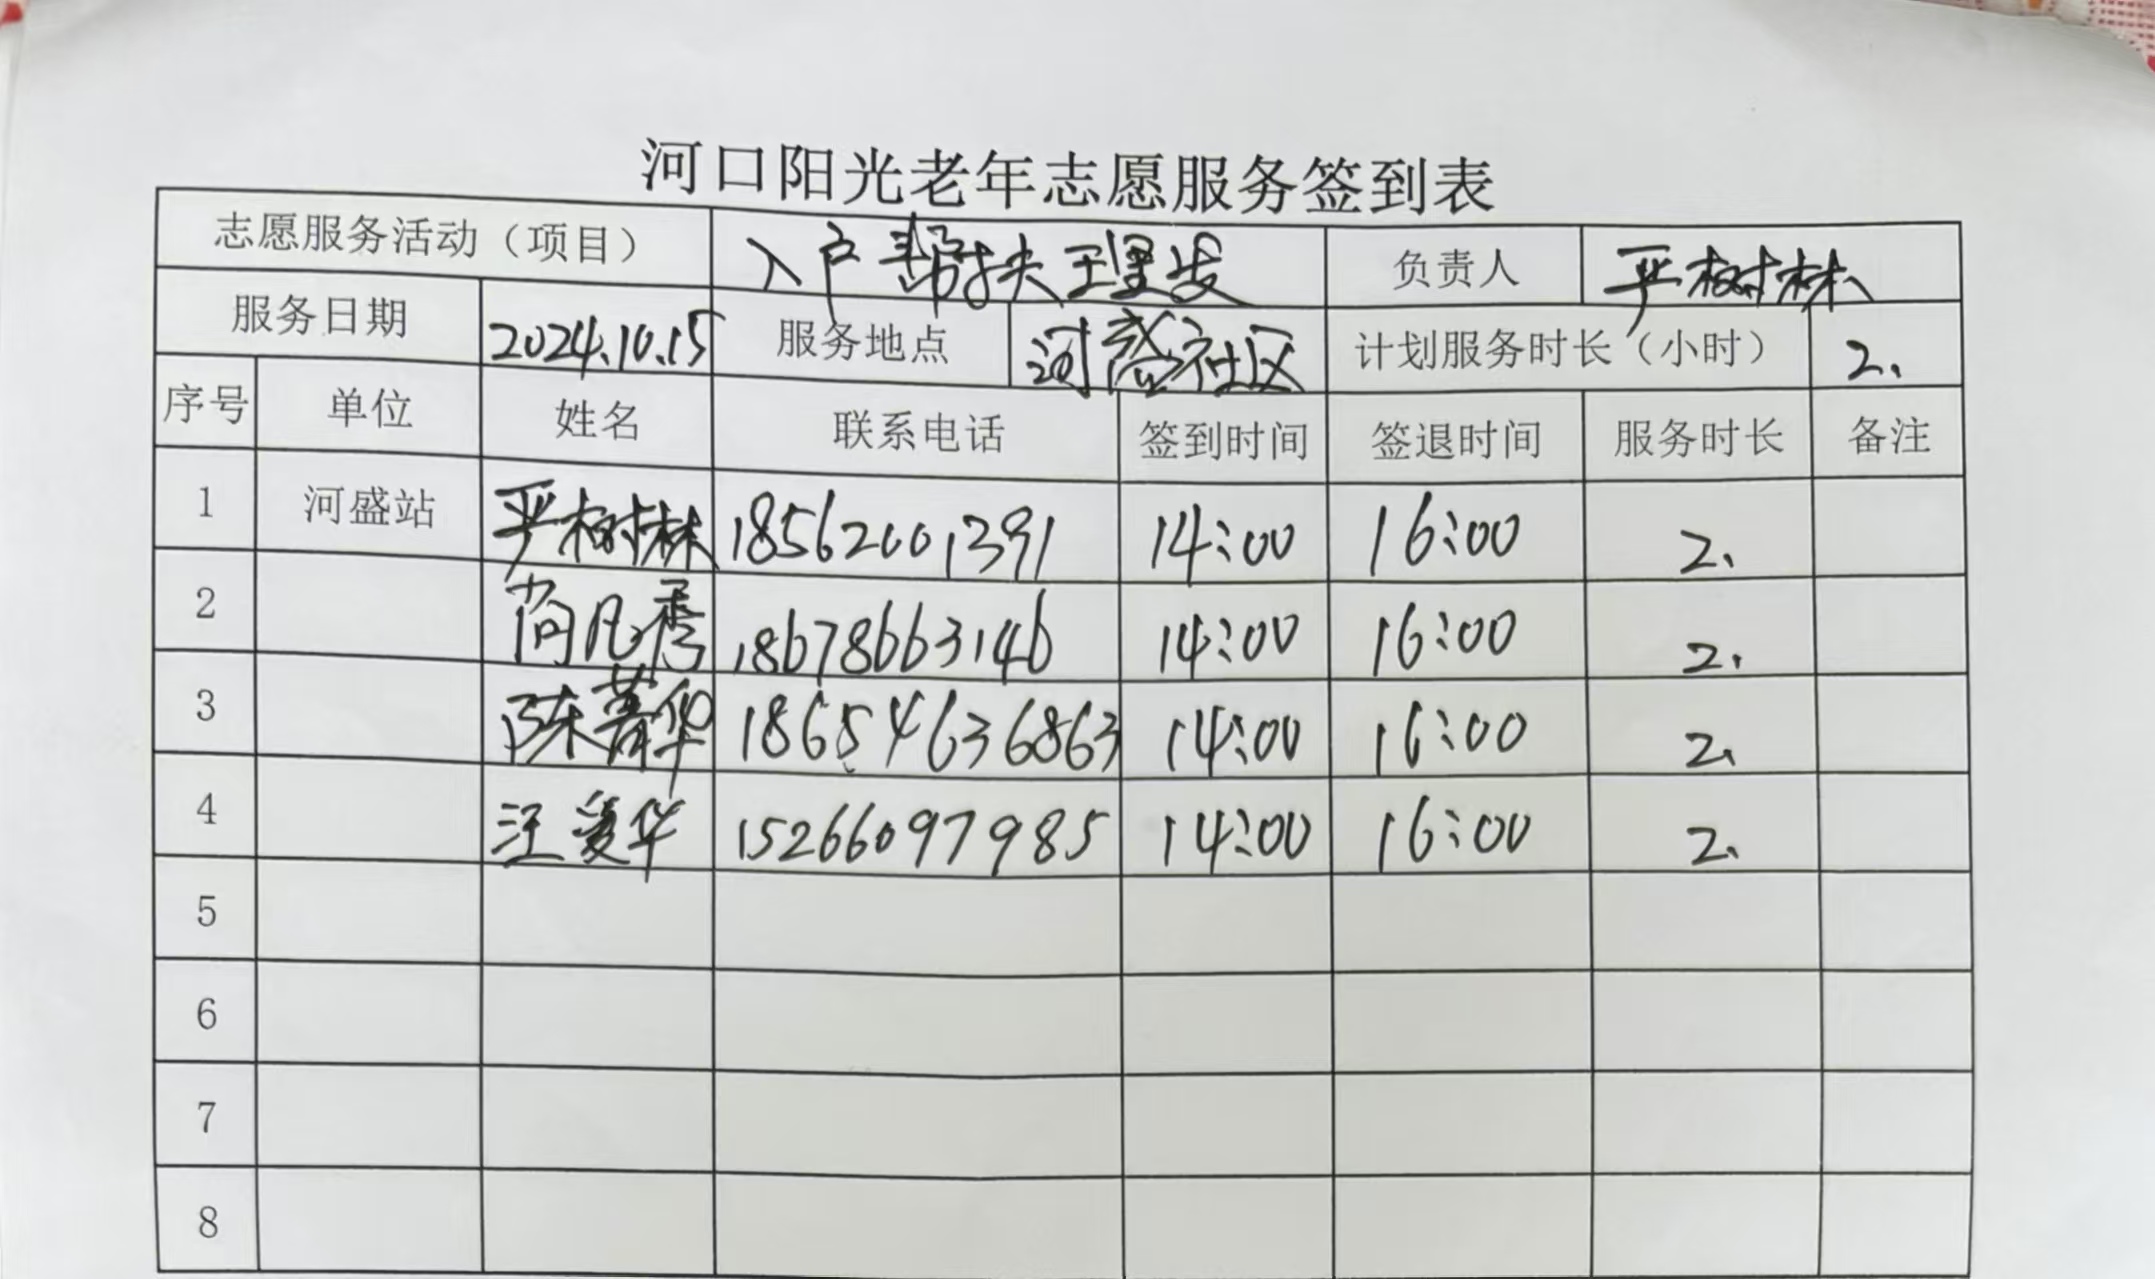 河口阳光老年志愿服务签到表
志愿服务活动（项目） 入户帮扶王理发 负责人 严树林
服务日期 2024.10.15 服务地点 河盛社区 计划服务时长（小时） 2.
序号 单位 姓名 联系电话 签到时间 签退时间 服务时长 备注
1 河盛站 严树林 18562001391 14:00 16:00 2.
2 尚凡秀 18678663146 14:00 16:00 2.
3 陈菁华 18654636863 14:00 16:00 2.
4 汪爱华 15266097985 14:00 16:00 2.
5
6
7
8